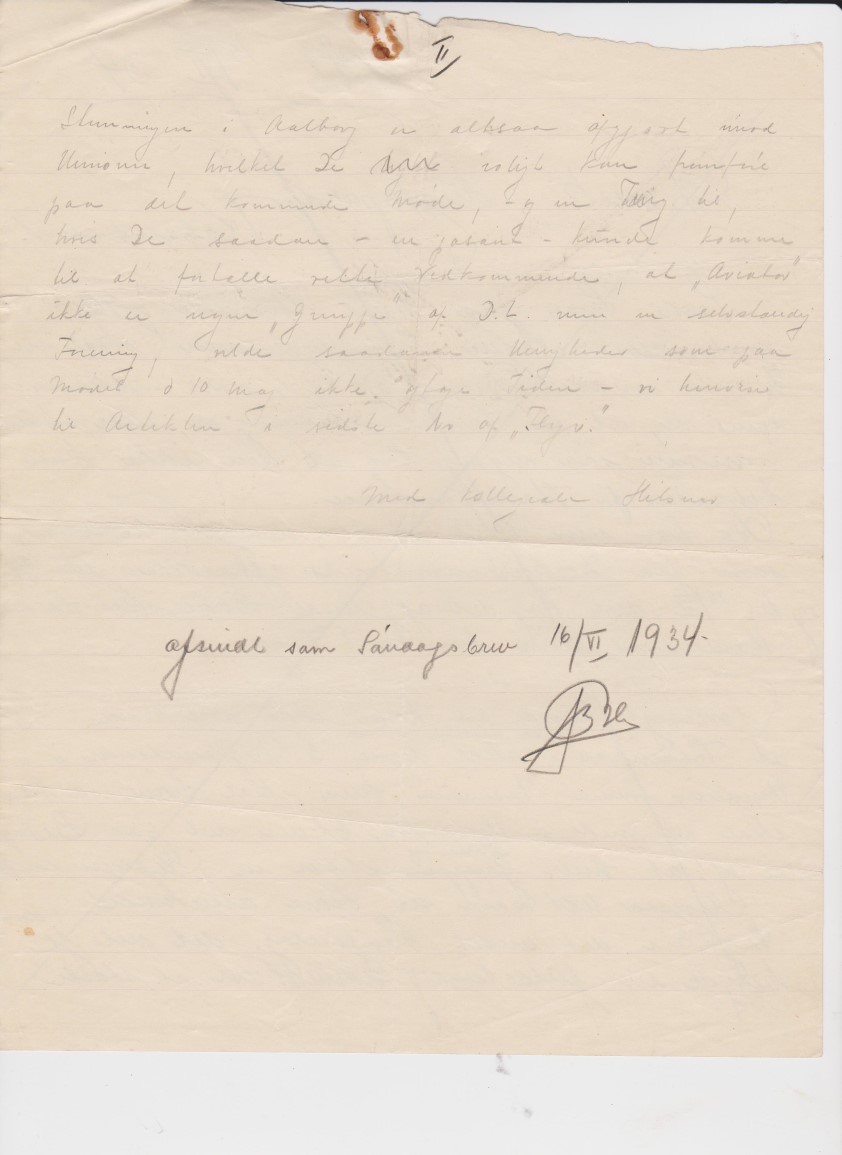 II
Stemningen i Aalborg er altsaa afgjort imod
Unionen, hvilket De roligt kan fremføre
paa det kommende Møde, - og en Ting til,
hvis De saadan - en passant - kunde komme
til at fortælle rette Vedkommende, at „Aviator"
ikke er nogen „Gruppe" af D.L. men en selvstændig
Forening, vilde saadanne Uenigheder som paa
Mødet d 10 maj ikke optage Tiden - vi henviser
til Artiklen i sidste No af „Flyv."
Med kollegiale Hilsner
afsendt som Søndagsbrev 16/VI 1934-